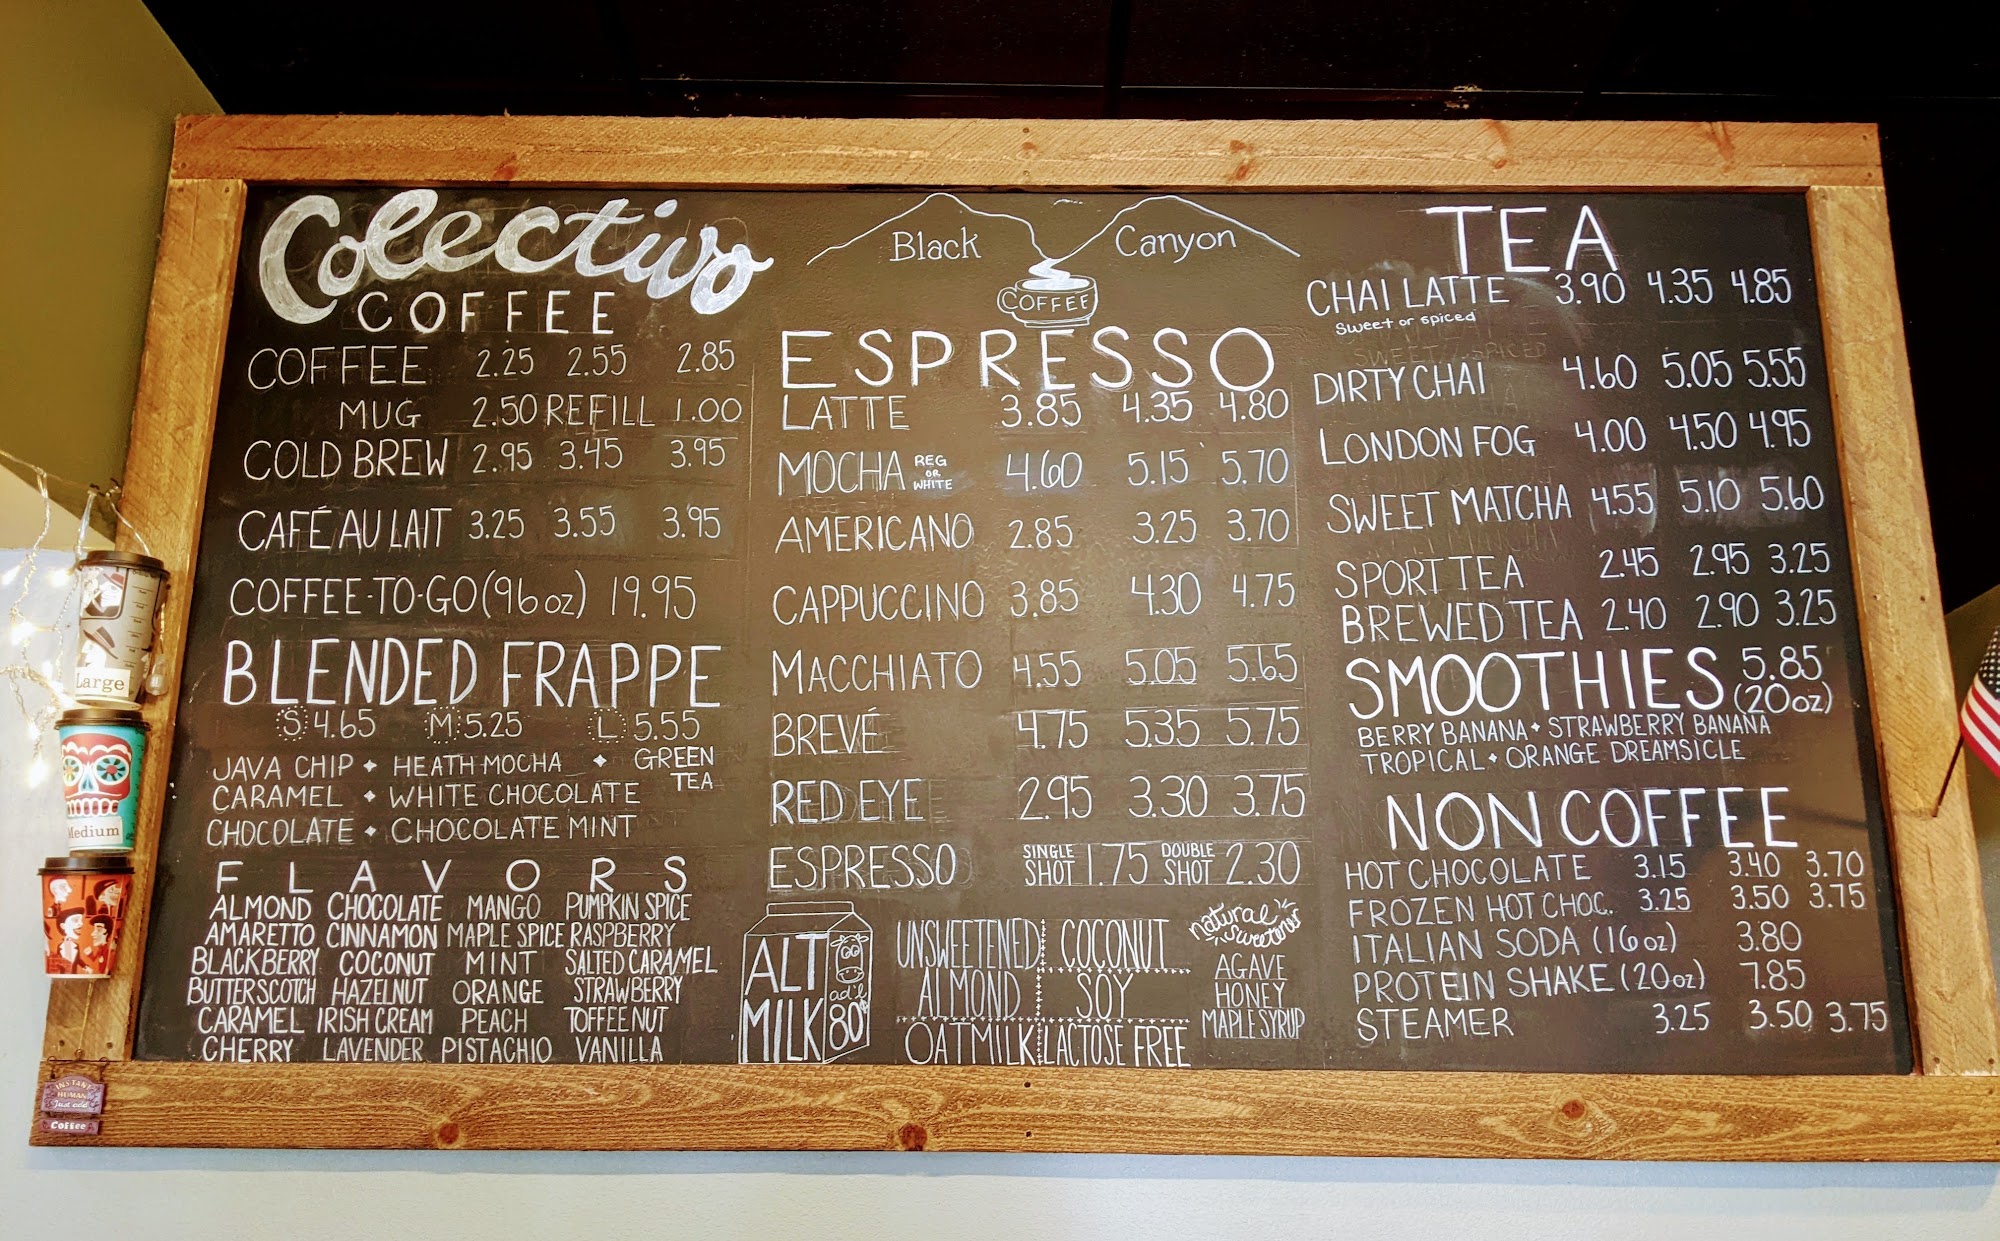 Colectivo
COFFEE
COFFEE 2.25 2.55 2.85
MUG 2.50 REFILL 1.00
COLD BREW 2.95 3.45 3.95
CAFÉ AU LAIT 3.25 3.55 3.95
COFFEE-TO-GO (96 oz) 19.95
BLENDED FRAPPE
S 4.65 M 5.25 L 5.55
JAVA CHIP • HEATH MOCHA • GREEN TEA
CARAMEL • WHITE CHOCOLATE
CHOCOLATE • CHOCOLATE MINT
FLAVORS
ALMOND CHOCOLATE MANGO PUMPKIN SPICE
AMARETTO CINNAMON MAPLE SPICE RASPBERRY
BLACKBERRY COCONUT MINT SALTED CARAMEL
BUTTERSCOTCH HAZELNUT ORANGE STRAWBERRY
CARAMEL IRISH CREAM PEACH TOFFEE NUT
CHERRY LAVENDER PISTACHIO VANILLA
Black Canyon
COFFEE
ESPRESSO
LATTE 3.85 4.35 4.80
MOCHA REG OR WHITE 4.60 5.15 5.70
AMERICANO 2.85 3.25 3.70
CAPPUCCINO 3.85 4.30 4.75
MACCHIATO 4.55 5.05 5.65
BREVÉ 4.75 5.35 5.75
RED EYE 2.95 3.30 3.75
ESPRESSO SINGLE SHOT 1.75 DOUBLE SHOT 2.30
ALT MILK
ad'l 80¢
UNSWEETENED ALMOND
COCONUT
SOY
OATMILK
LACTOSE FREE
natural sweetener
AGAVE
HONEY
MAPLE SYRUP
TEA
CHAI LATTE 3.90 4.35 4.85
Sweet or spiced
DIRTY CHAI 4.60 5.05 5.55
LONDON FOG 4.00 4.50 4.95
SWEET MATCHA 4.55 5.10 5.60
SPORT TEA 2.45 2.95 3.25
BREWED TEA 2.40 2.90 3.25
SMOOTHIES 5.85 (20oz)
BERRY BANANA • STRAWBERRY BANANA
TROPICAL • ORANGE DREAMSICLE
NON COFFEE
HOT CHOCOLATE 3.15 3.40 3.70
FROZEN HOT CHOC. 3.25 3.50 3.75
ITALIAN SODA (16 oz) 3.80
PROTEIN SHAKE (20oz) 7.85
STEAMER 3.25 3.50 3.75
Large
Medium
INSTANT
HUMAN
Just add
Coffee